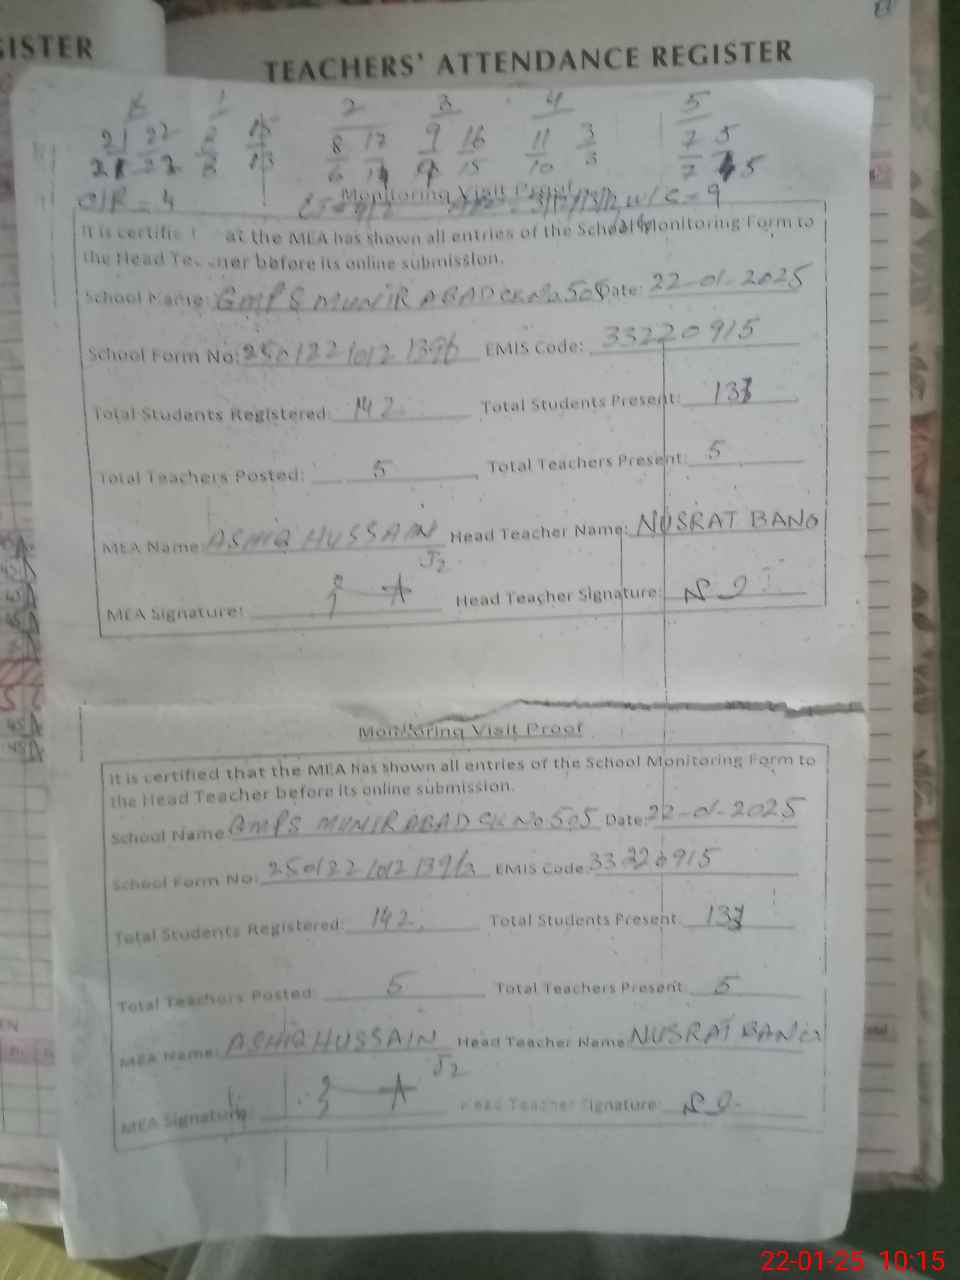 GISTER
TEACHERS' ATTENDANCE REGISTER
K 1 2 3 4 5
21 22 8 17 9 16 11 3 7 5
21 22 8 13 6 14 9 15 10 3 7 5
= 4 w/c = 9
Monitoring Visit Proof
It is certified at the MEA has shown all entries of the School Monitoring Form to
the Head Teacher before its online submission.
School Name: GMPS MUNIR ABAD CK No 505 Date: 22-01-2025
School Form No: 2501221012 1396 EMIS Code: 33220915
Total Students Registered: 142 Total Students Present: 133
Total Teachers Posted: 5 Total Teachers Present: 5
MEA Name: ASHIQ HUSSAIN Head Teacher Name: NUSRAT BANO
J2
MEA Signature: Head Teacher Signature:
Monitoring Visit Proof
It is certified that the MEA has shown all entries of the School Monitoring Form to
the Head Teacher before its online submission.
School Name: GMPS MUNIR ABAD CK No 505 Date: 22-01-2025
School Form No: 250122 1012 1396 EMIS Code: 33220915
Total Students Registered: 142 Total Students Present: 133
Total Teachers Posted: 5 Total Teachers Present: 5
MEA Name: ASHIQ HUSSAIN Head Teacher Name: NUSRAT BANO
J2
MEA Signature: Head Teacher Signature:
22-01-25 10:15